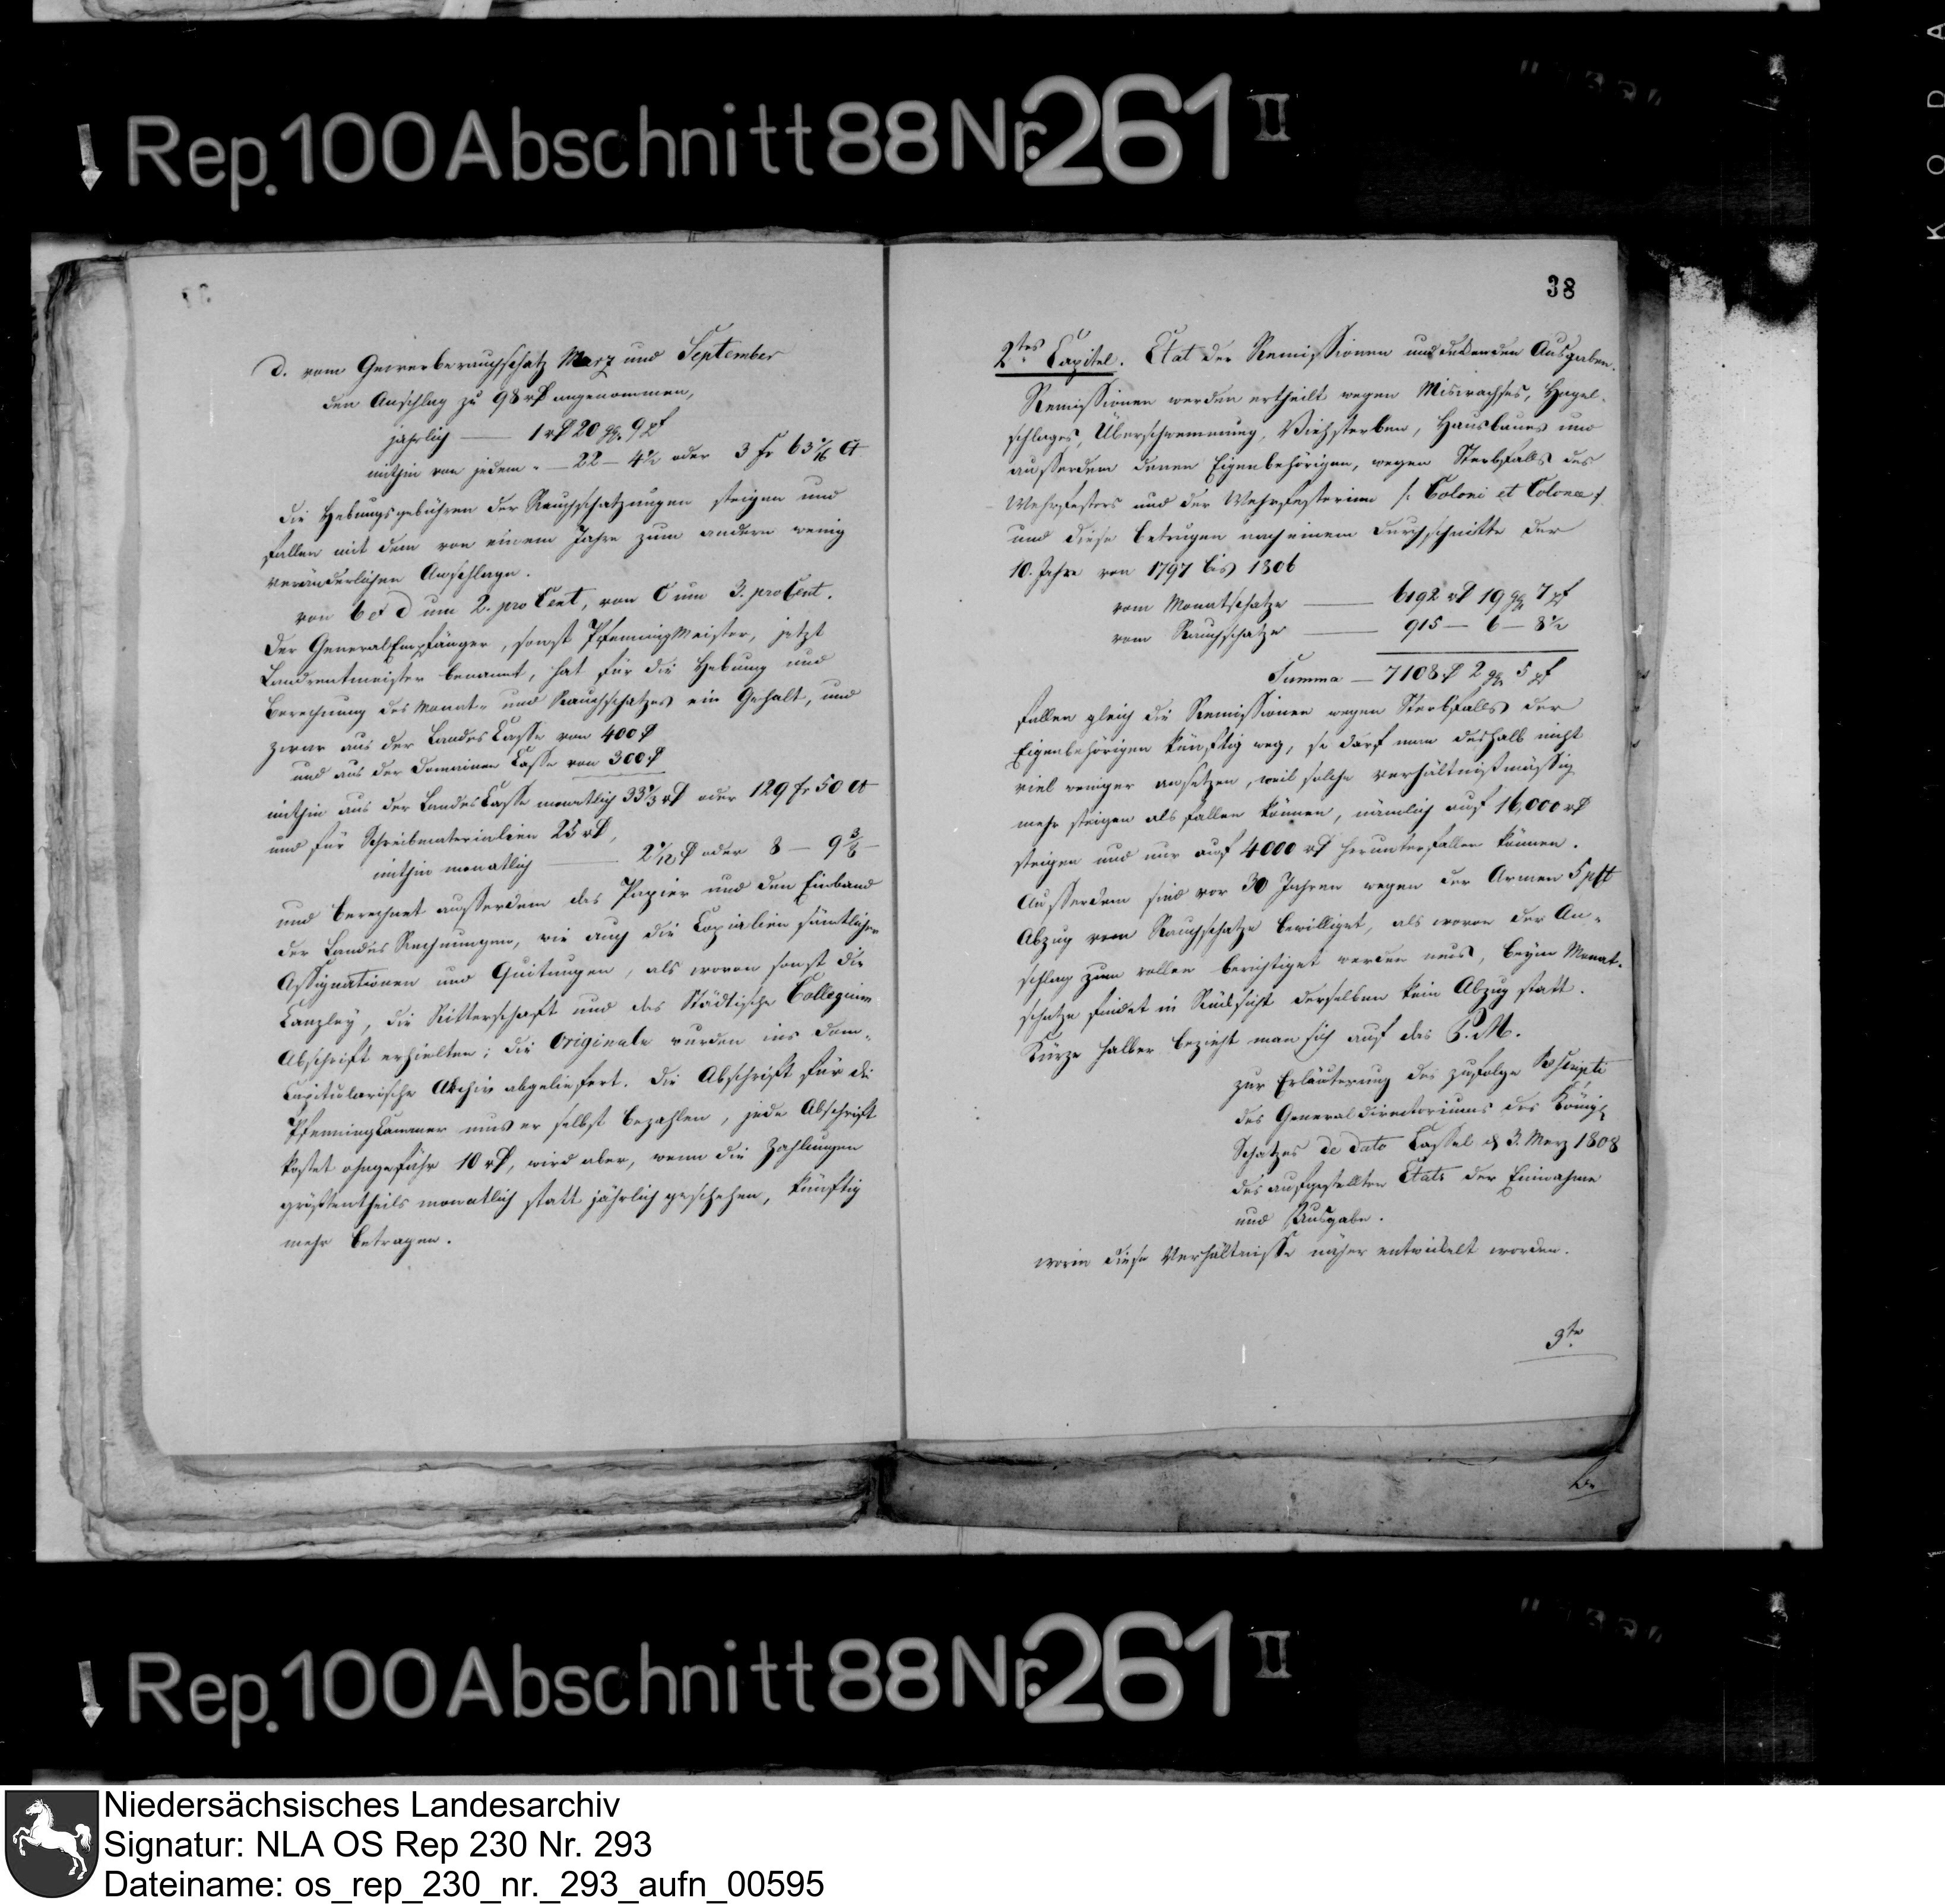 Rep. 100 Abschnitt 88 Nr. 261 II
d. vom Gewerberauchschatz Merz und September
den Anschlag zu 98 rP angenommen,
jährlich — 1 rP 20 ggr 9 pf
mithin von jedem — 22 — 4½ oder 3 fr 63 Ct
die Hebungsgebühren der Rauchschatzungen steigen und
fallen mit dem von einem Jahre zum andern wenig
veränderlichen Anschlage.
von b et d um 2. pro Cent, von C um 3. pro Cent.
Der General Empfänger, sonst Pfenning Meister, jetzt
Landrentmeister benannt, hat für die Hebung und
Berechnung des Monat- und Rauchschatzes ein Gehalt, und
zwar aus der Landes Casse von 400 P
und aus der Domainen Casse von 300 P
mithin aus der Landes Casse monatlich 33⅓ rP oder 129 fr 50 Ct
und für Schreibmaterialien 25 rP,
mithin monatlich 2 1/12 P oder 8 — 9⅜
und berechnet ausserdem das Papier und den Einband
der Landes Rechnungen, wie auch die Copialien sämtlicher
Assignationen und Quitungen, als wovon sonst die
Canzley, die Ritterschaft und das Städtische Collegium
Abschrift erhielten; die Originale wurden ins Dom-
Capitularische Archiv abgeliefert. Die Abschrift für die
Pfenningkammer mus er selbst bezahlen, jede Abschrift
kostet ohngefähr 10 rP, wird aber, wenn die Zahlungen
größtentheils monatlich statt jährlich geschehen, künftig
mehr betragen.
38
2tes Capitel. Etat der Remissionen und Ausgaben.
Remissionen werden ertheilt wegen Miswachses, Hagel-
schlages, Überschwemmung, Viehsterben, Hausbaues und
ausserdem denen Eigenbehörigen, wegen Sterbfalls des
Wehrfesters und der Wehrfesterinn /: Coloni et Colonae :/
und diese betrugen nach einem Durchschnitte der
10. Jahre von 1797 bis 1806
vom Monatschatze — 6192 rP 19 ggr 7 pf
vom Rauchschatze — 915 — 6 — 8½
Summa — 7108 P 2 ggr 5 pf
fallen gleich die Remissionen wegen Sterbfalls der
Eigenbehörigen künftig weg, so darf man deshalb nicht
viel weniger ansetzen, weil solche verhältnißmässig
mehr steigen als fallen können, nämlich auf 16,000 rP
steigen und nur auf 4000 rP herunterfallen können.
Ausserdem sind vor 30 Jahren wegen der Armen 5 pCt
Abzug vom Rauchschatze bewilliget, als wovon der An-
schlag zum vollen berichtiget werden mus, beym Monat-
schatze findet in Rücksicht derselben kein Abzug statt.
Kürze halber bezieht man sich auf das P. M.
zur Erläuterung des zufolge Rescripti
des Generaldirectoriums des Königl
Schatzes de dato Cassel d 3. Merz 1808
des aufgestellten Etats der Einnahme
und Ausgabe.
worin diese Verhältnisse näher entwickelt worden.
3te
Rep. 100 Abschnitt 88 Nr. 261 II
KODA
Niedersächsisches Landesarchiv
Signatur: NLA OS Rep 230 Nr. 293
Dateiname: os_rep_230_nr._293_aufn_00595